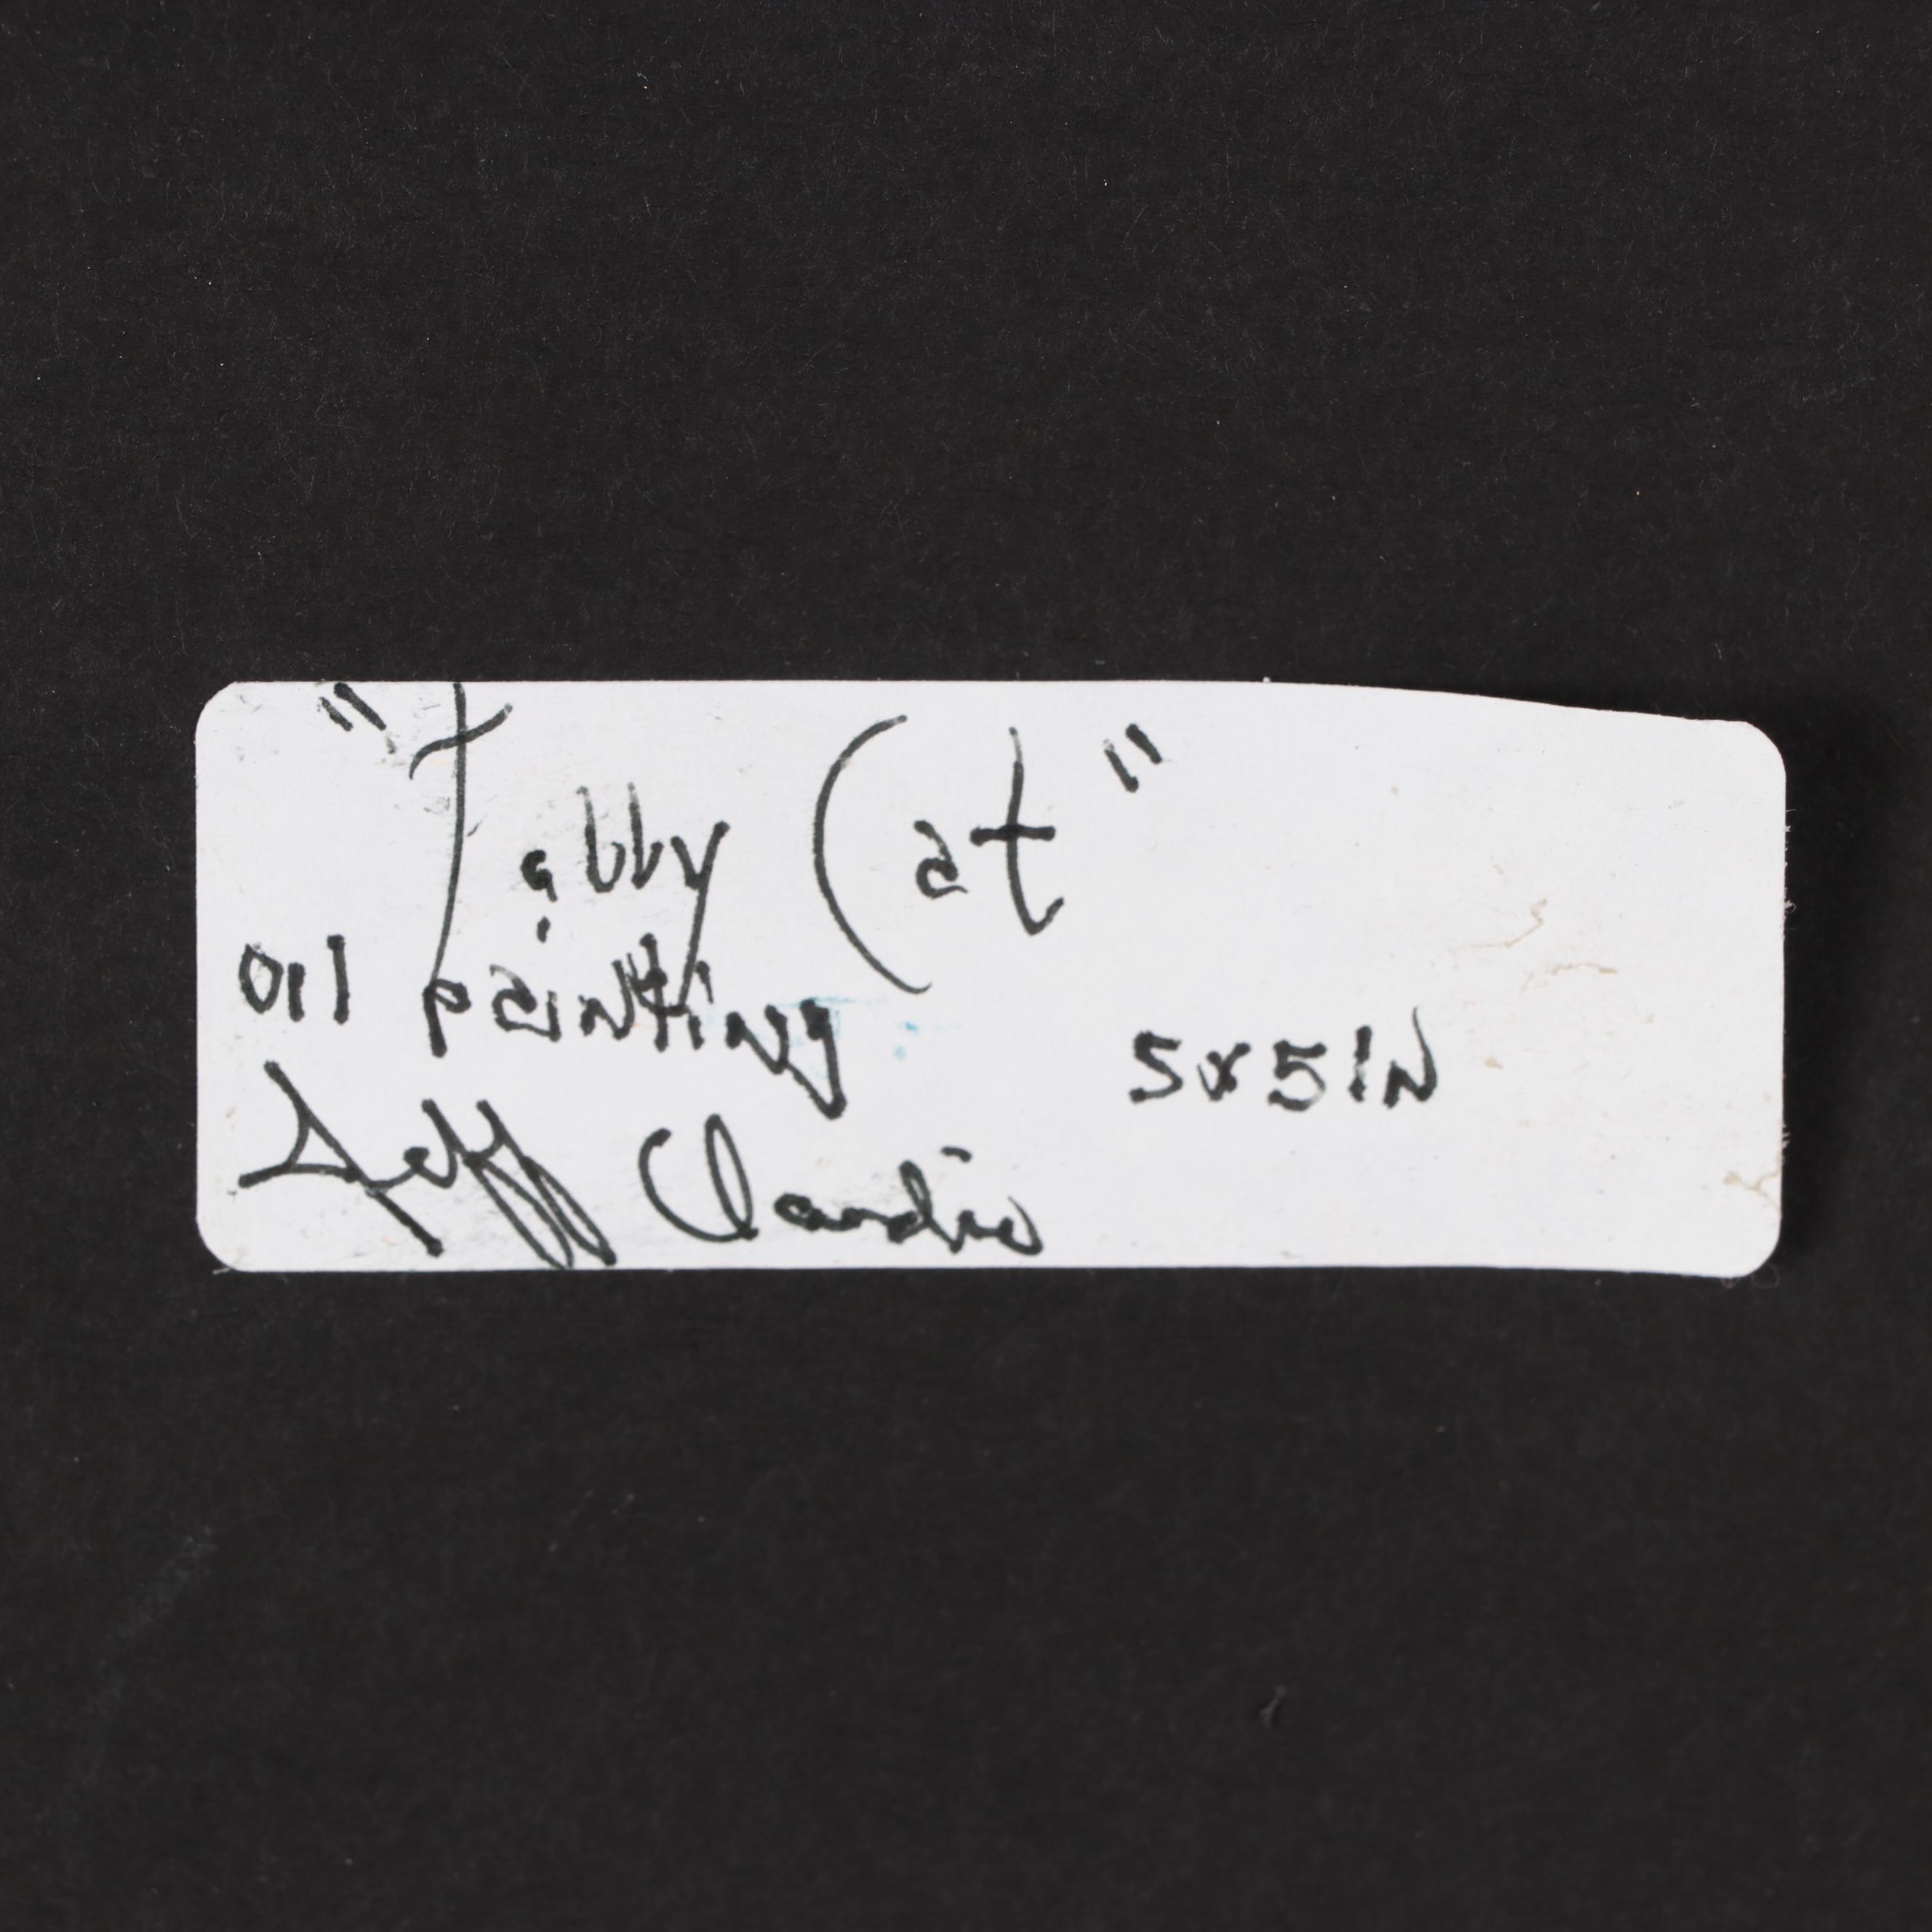 "Tabby Cat"
oil painting
5x5 IN
Jeff Claudio